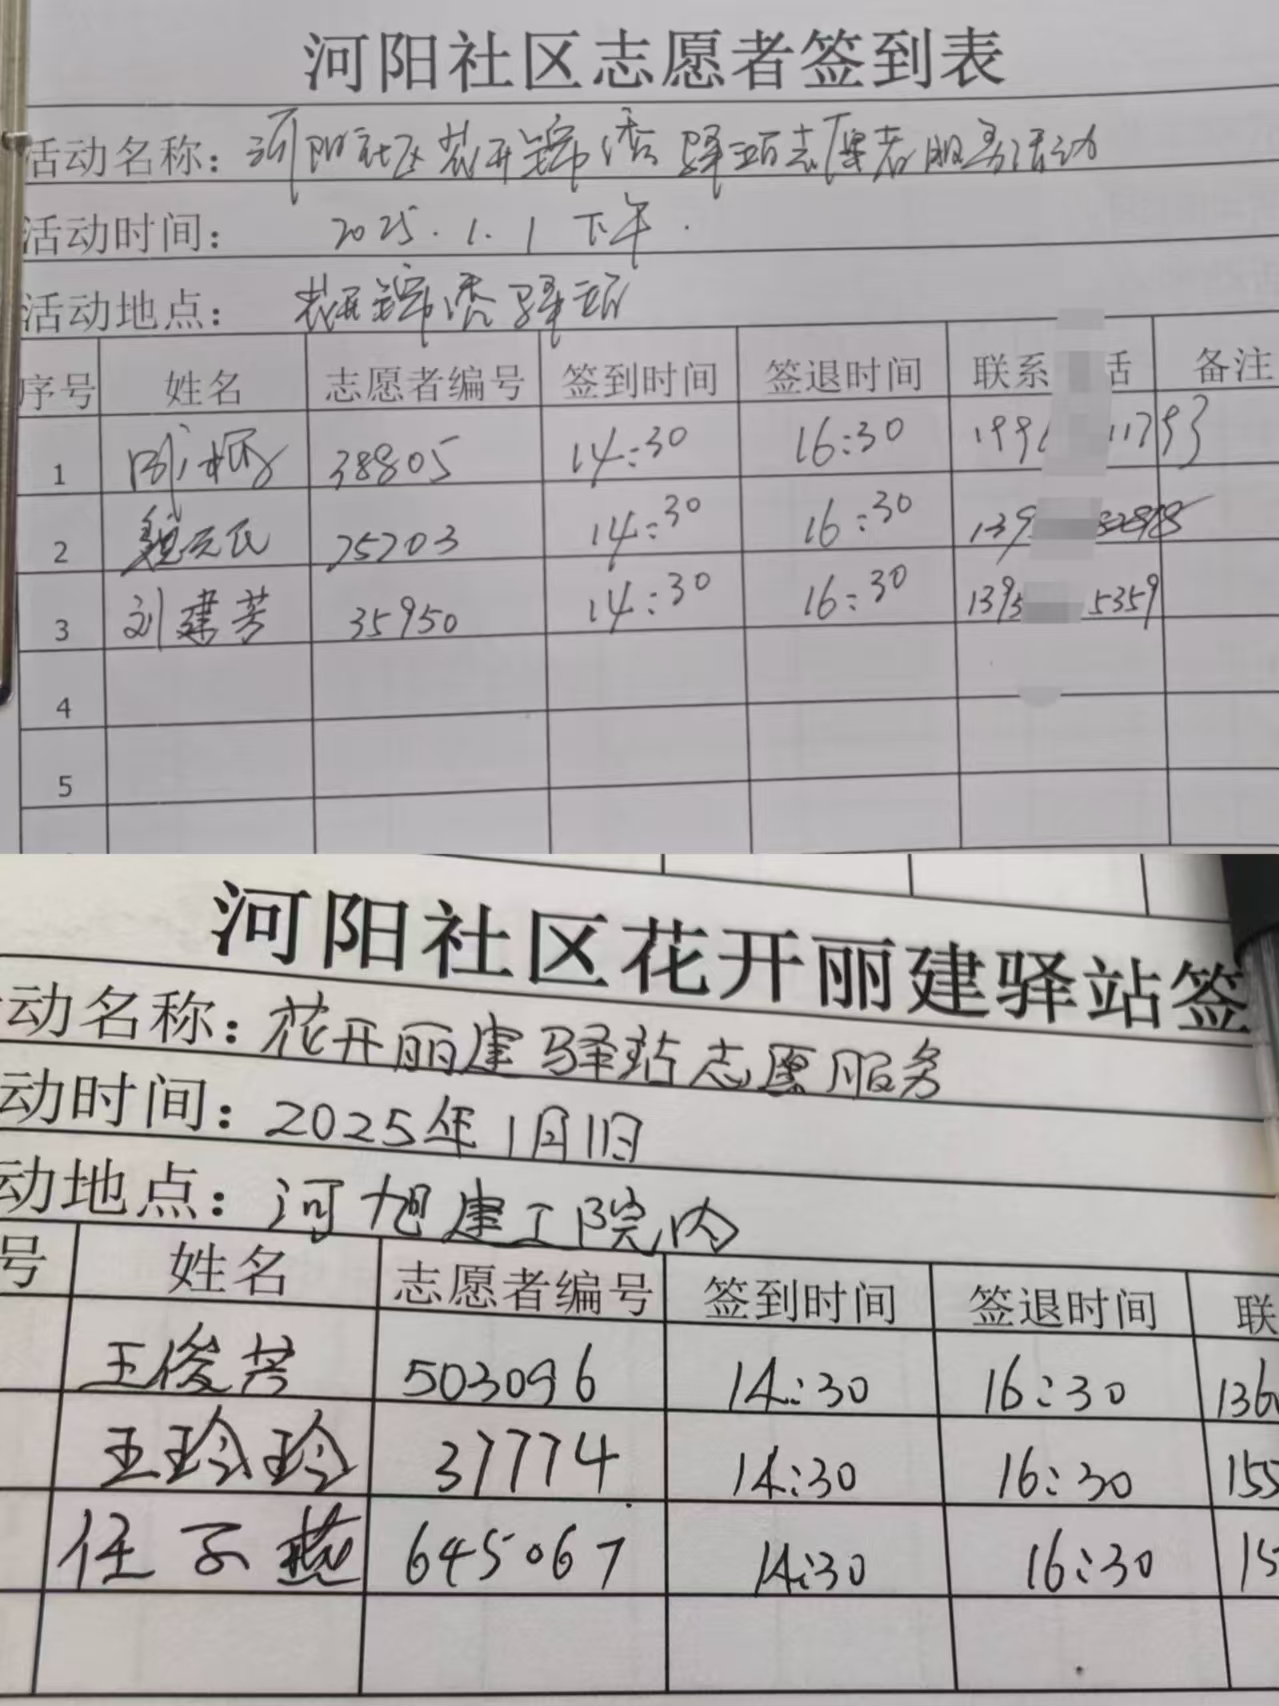 河阳社区志愿者签到表
活动名称：河阳社区花开锦秀驿站志愿者服务活动
活动时间：2025.1.1 下午.
活动地点：花开锦秀驿站
序号 姓名 志愿者编号 签到时间 签退时间 联系 话 备注
1 38805 14:30 16:30 199 11793
2 魏元民 25203 14:30 16:30 139
3 刘建芳 35950 14:30 16:30 1395 5359
4
5
河阳社区花开丽建驿站签
动名称：花开丽建驿站志愿服务
动时间：2025年1月1日
动地点：河旭建工院内
号 姓名 志愿者编号 签到时间 签退时间 联
王俊芳 503096 14:30 16:30 136
王玲玲 37774 14:30 16:30 155
任子燕 645067 14:30 16:30 15